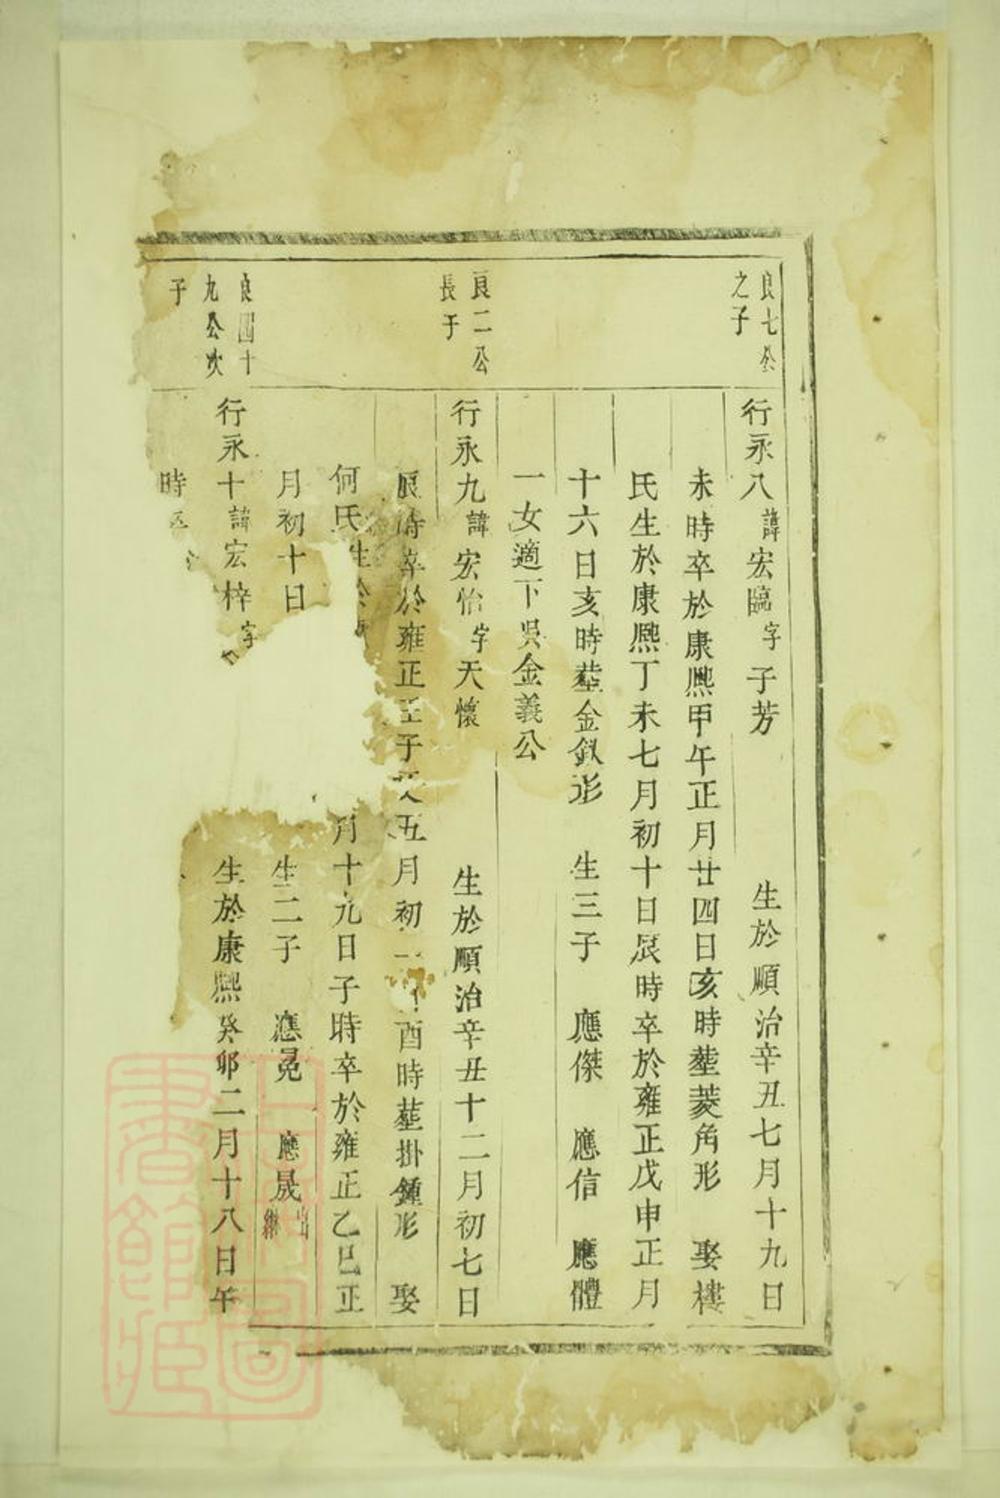 良七公
之子
行永八諱宏臨字子芳 生於順治辛丑七月十九日
未時卒於康熈甲午正月廿四日亥時塟菱角形 娶樓
氏生於康熈丁未七月初十日辰時卒於雍正戊申正月
十六日亥時塟金釵形 生三子 應傑 應信 應體
一女適下吳金義公
良二公
長子
行永九諱宏怡字天懷 生於順治辛丑十二月初七日
辰時卒於雍正壬子 五月初一 酉時塟掛鍾形 娶
何氏生於 月十九日子時卒於雍正乙巳正
月初十日 生二子 應晃 應晟出繼
良四十
九公次
子
行永十諱宏梓字 生於康熈癸卯二月十八日午
時